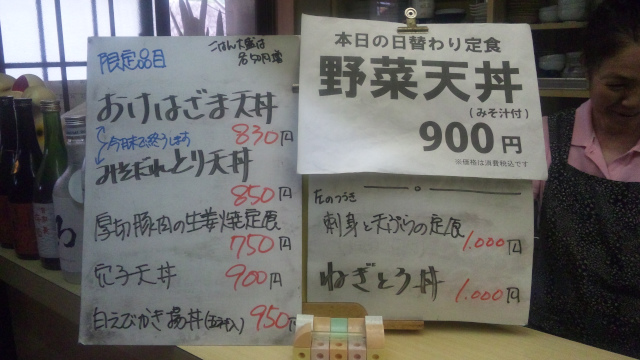 限定品目
ごはん大盛は
各50円増
おけはざま天丼
830円
今月末で終ります
みそだれとり天丼
850円
厚切豚肉の生姜焼定食
750円
穴子天丼
900円
白えびかき揚丼
950円
本日の日替わり定食
野菜天丼
(みそ汁付)
900円
※価格は消費税込です
左のつづき
刺身と天ぷらの定食
1.000円
ねぎとろ丼
1.000円